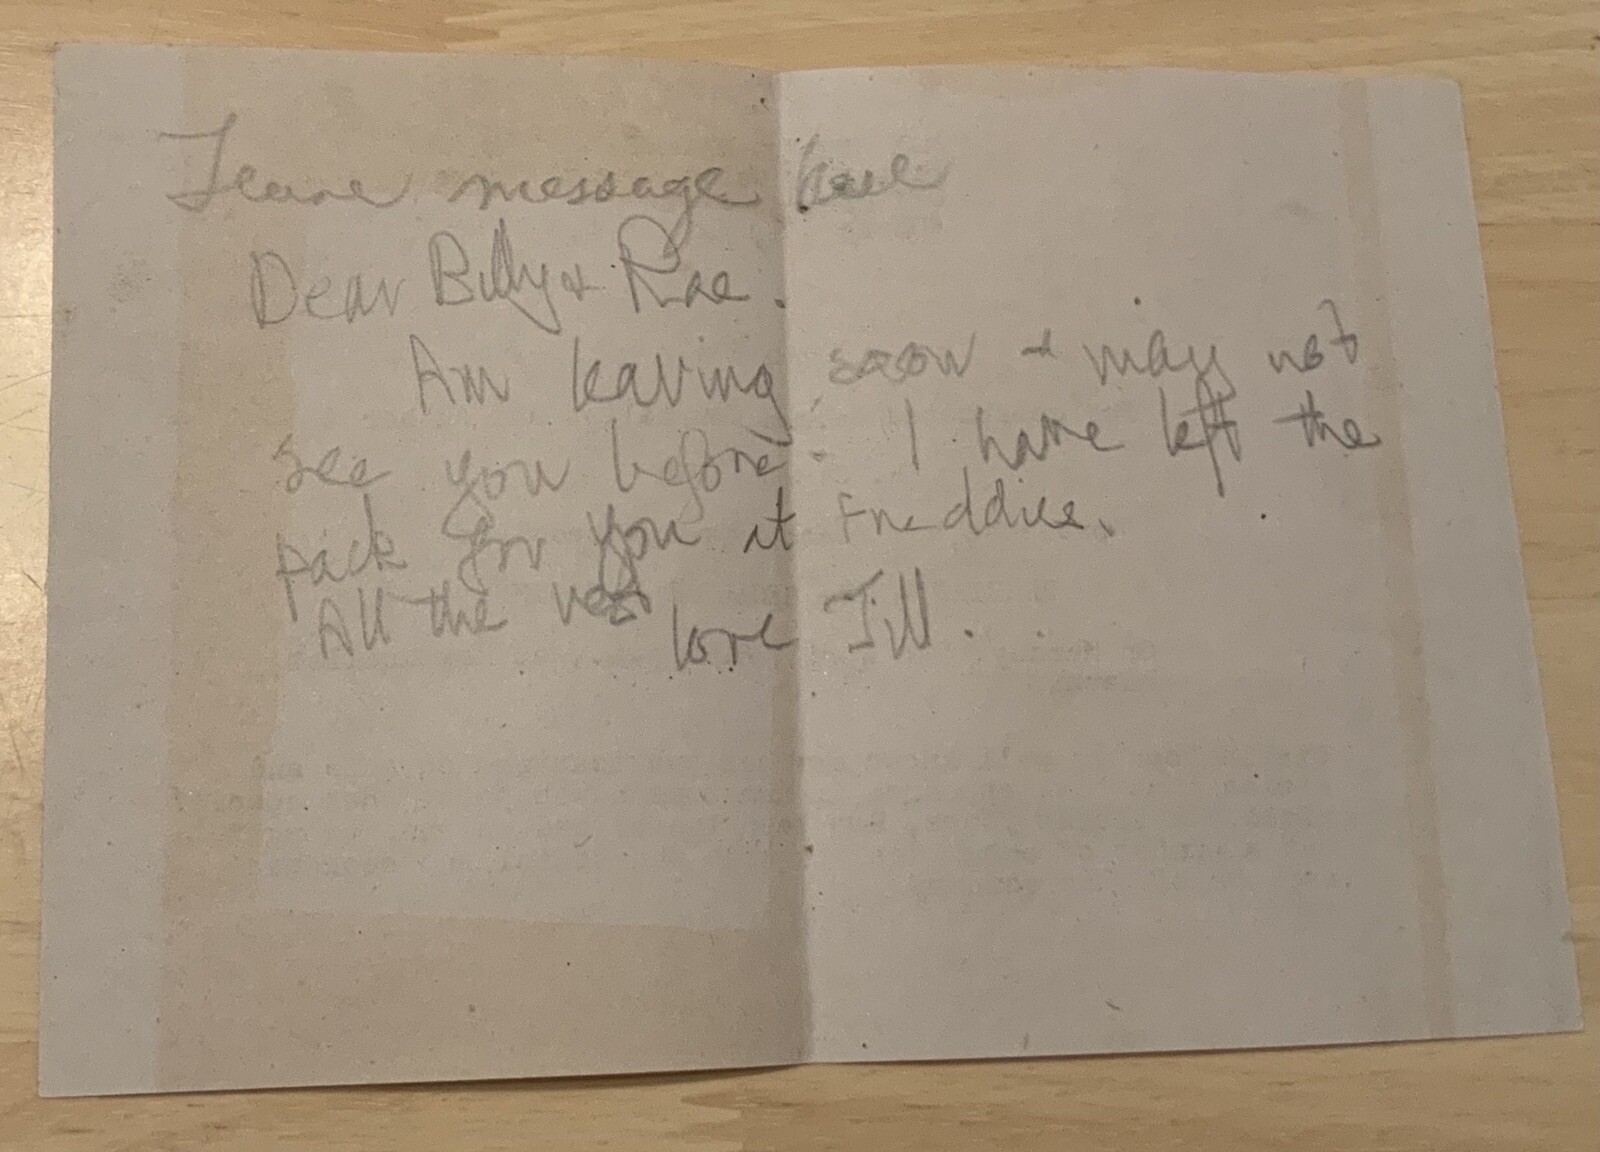 Leave message here
Dear Billy & Rae.
Am leaving soon & may not
see you before. I have left the
pack for you at Freddies.
All the
love Jill.